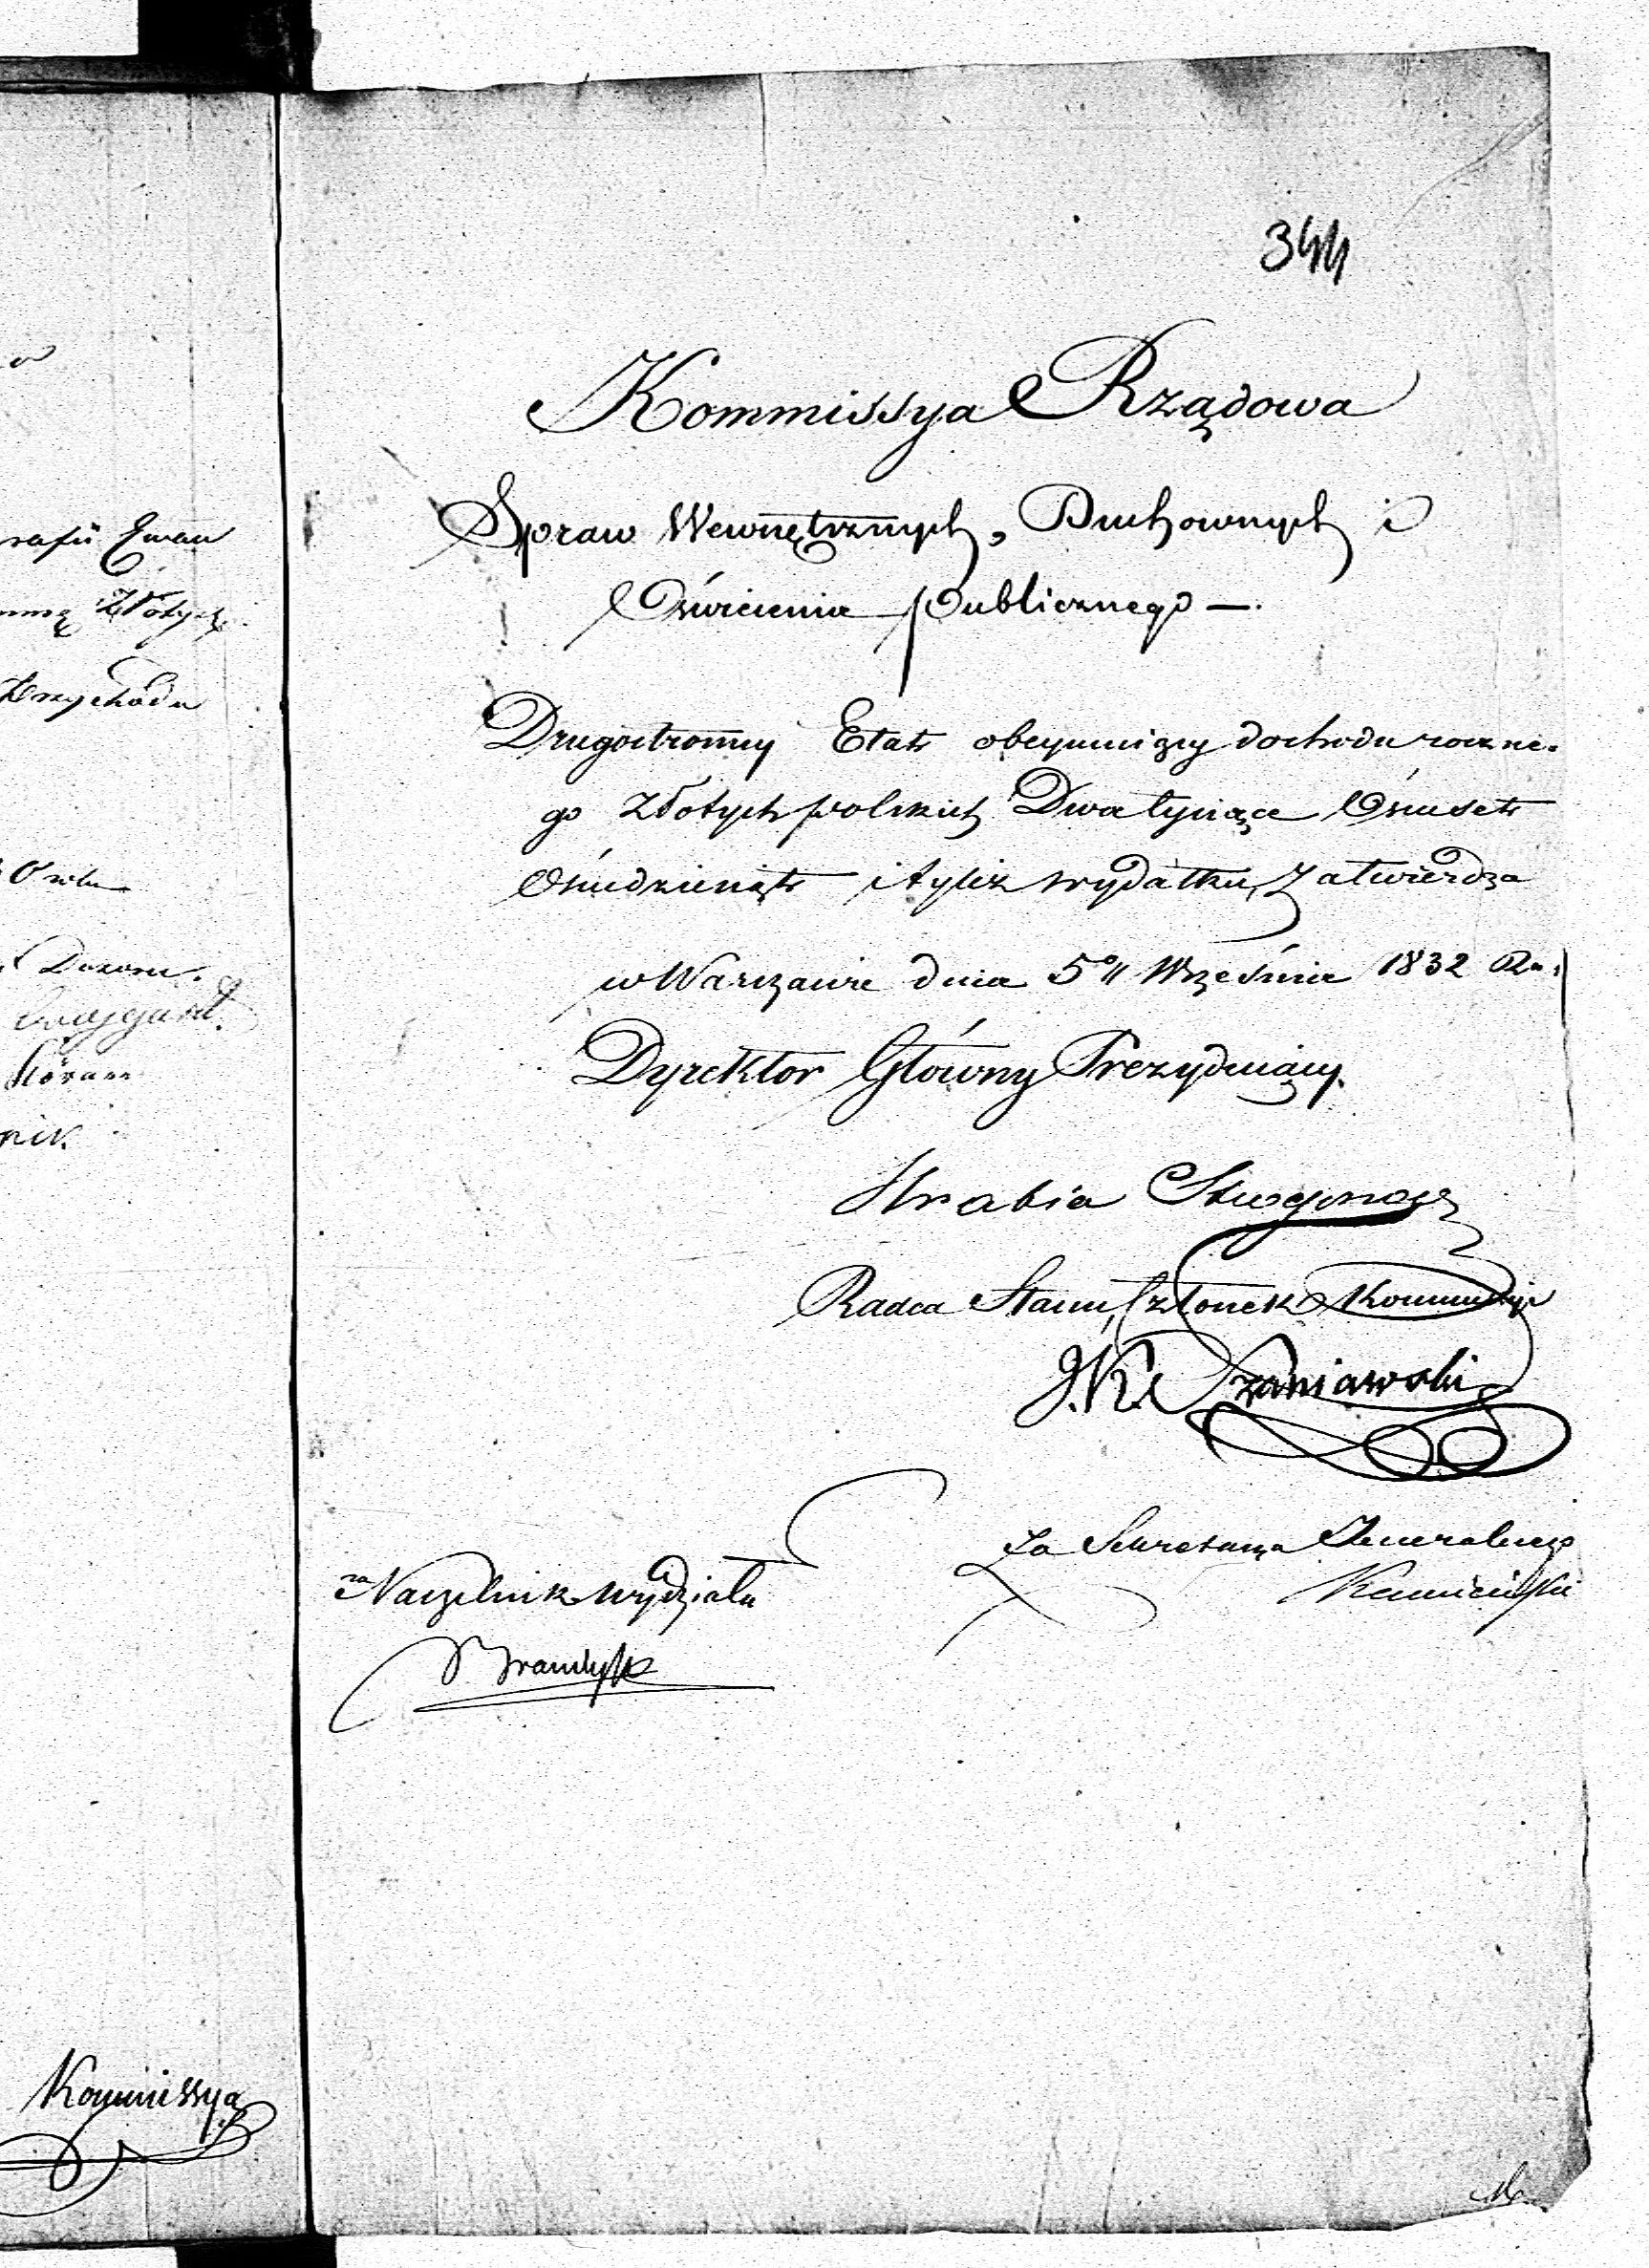 344
Kommissya Rządowa
Spraw Wewnętrznych, Duchownych i
Oświecenia Publicznego —.
Drugostronny Etat obeymuiący dochodu roczne-
go Złotych polskich Dwa tysiące Ośmset
Ośmdziesiąt i tyleż wydatku, Zatwierdza
w Warszawie dnia 5º Września 1832 Ru.
Dyrektor Główny Prezyduiący.
Hrabia Strogonow
Radca Stanu, Członek Kommissyi
J. K. Szaniawski
Za Sekretarza Jeneralnego
za Naczelnik Wydziału
rafii Ewan
mmę Złotych
Przychodu
Dozoru.
nik.
Kommissya